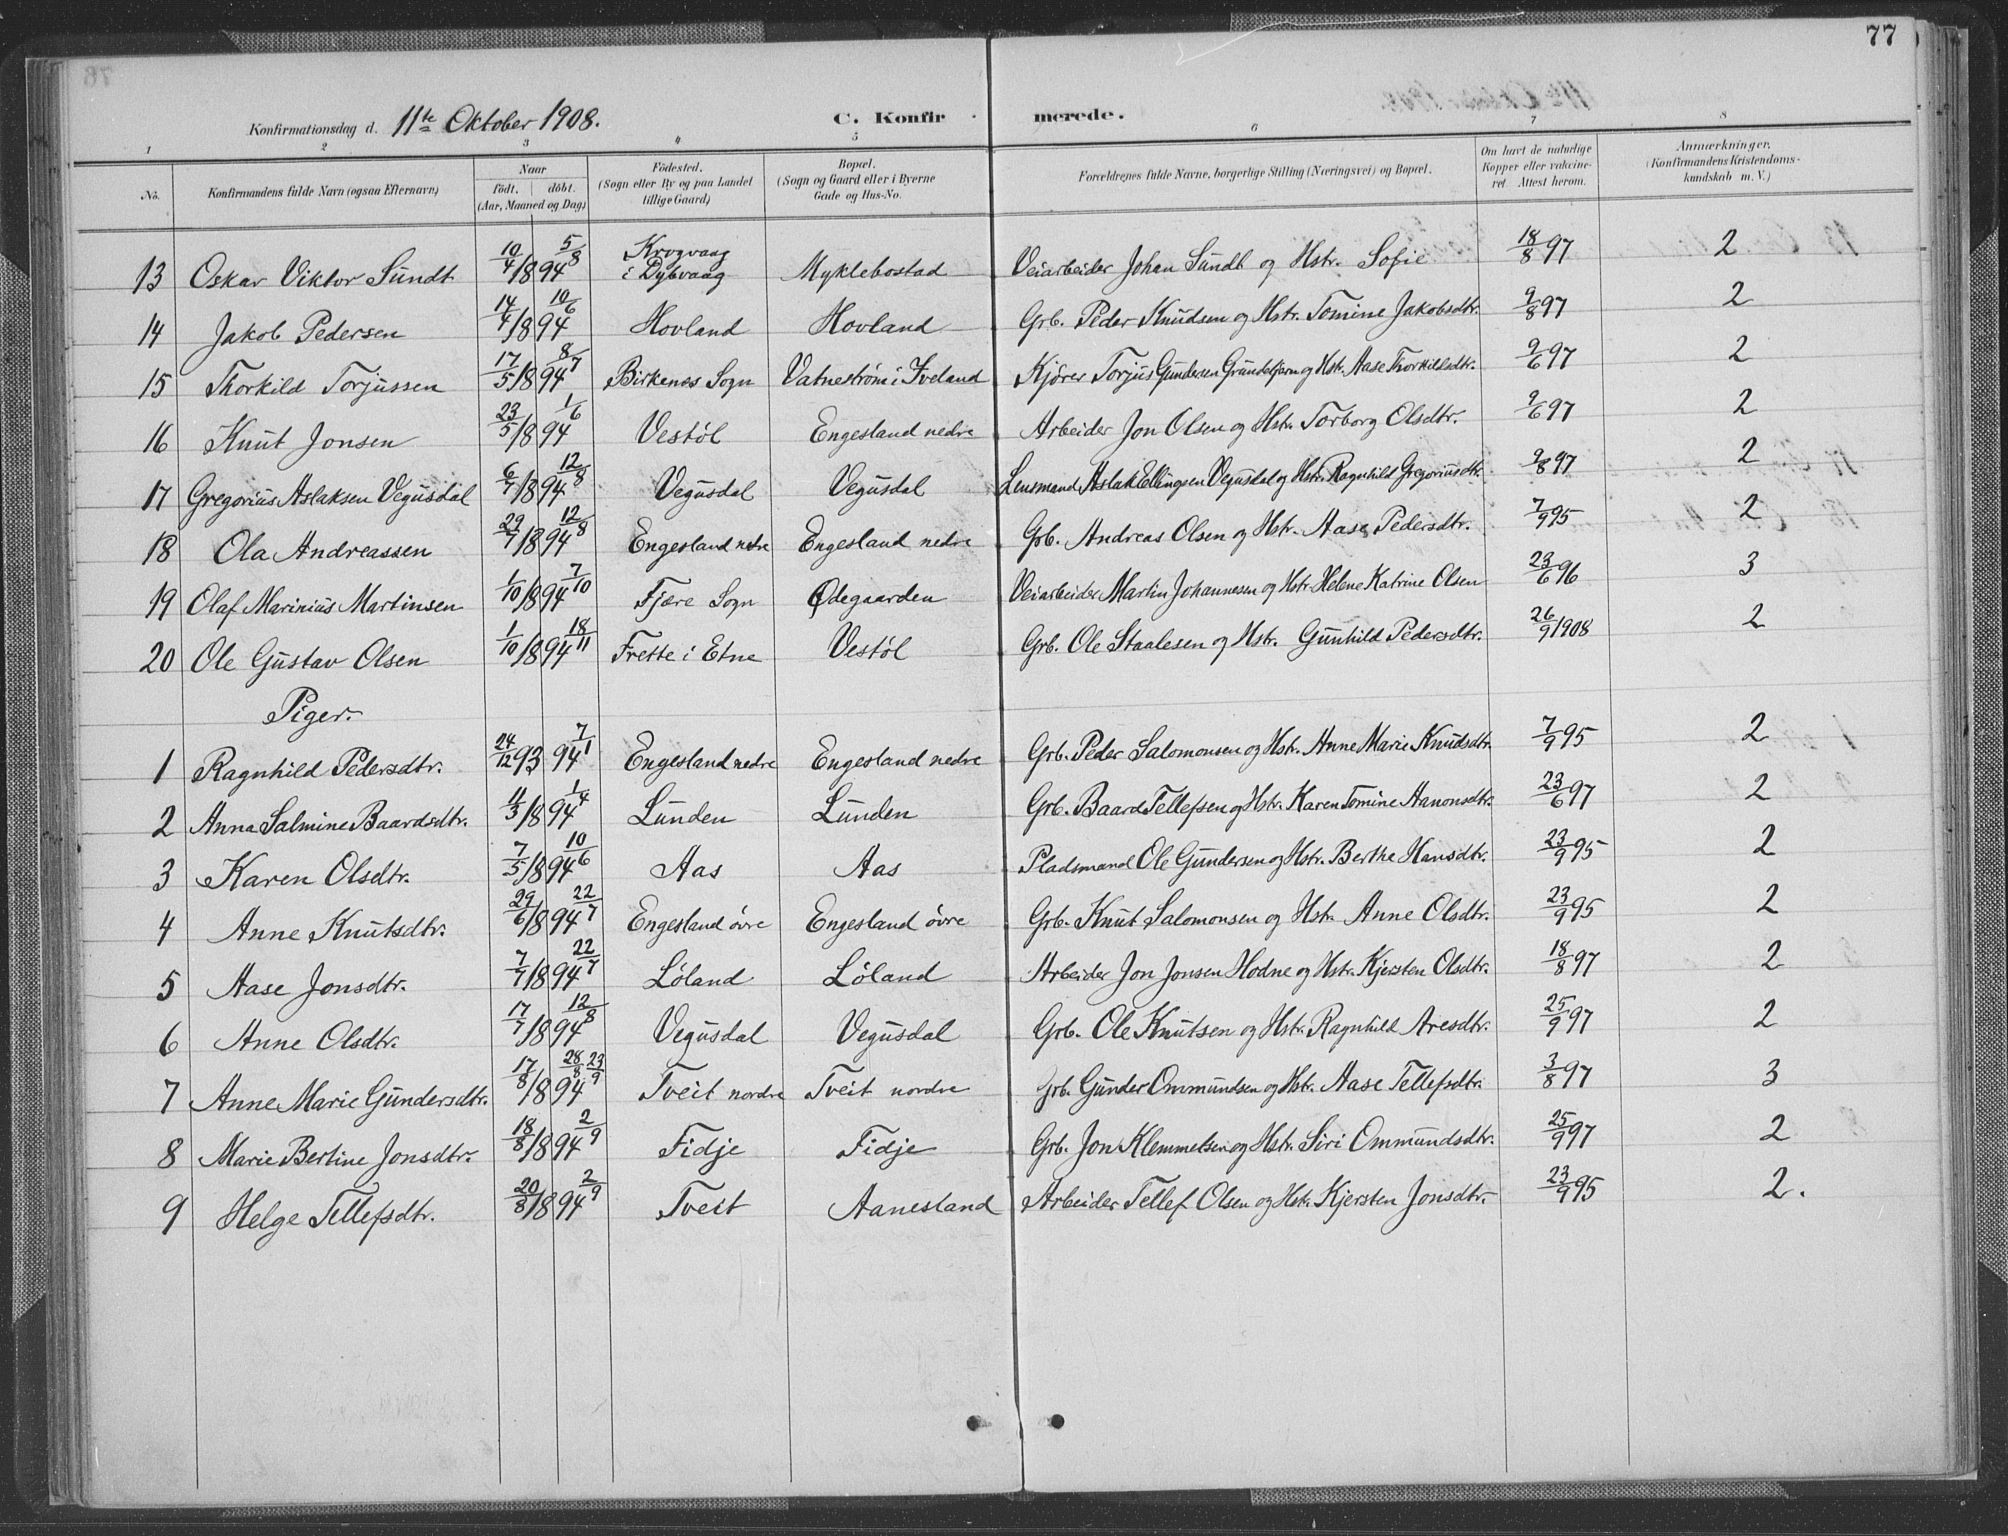 77
Konfirmationsdag d. 11te Oktober 1908. C. Konfirmerede.
1 2 3 4 5 6 7 8
No. Konfirmandens fulde Navn (ogsaa Efternavn). Naar født. døbt. (Aar, Maaned og Dag) Fødested. (Sogn eller By og paa Landet tillige Gaard) Bopæl. (Sogn og Gaard eller i Byerne Gade og Hus-No. Forældrenes fulde Navne, borgerlige Stilling (Næringsvei) og Bopæl. Om havt de naturlige Kopper eller vakcineret. Attest herom. Anmærkninger. (Konfirmandens Kristendomskundskab m. V.)
13 Oskar Viktor Sundt 10/4 1894 5/8 Krogvaag i Dybvaag Myklebostad Veiarbeider Johan Sundt og Hstr. Sofie 18/8 97 2
14 Jakob Pedersen 14/4 1894 10/6 Hovland Hovland Grb. Peder Knudsen og Hstr. Tomine Jakobsdtr. 9/8 97 2
15 Thorkild Torjussen 17/5 1894 8/7 Birkenes Sogn Vatnestrøm i Iveland Kjører Torjus Gundersen Grundetjern og Hstr. Aase Thorkildsdtr. 9/6 97 2
16 Knut Jonsen 23/5 1894 1/6 Vestøl Engesland nedre Arbeider Jon Olsen og Hstr. Torborg Olsdtr. 9/6 97 2
17 Gregorius Aslaksen Vegusdal 6/7 1894 12/8 Vegusdal Vegusdal Lensmand Aslak Ellingsen Vegusdal og Hstr. Ragnhild Gregoriusdtr. 9/8 97 2
18 Ola Andreassen 29/7 1894 12/8 Engesland nedre Engesland nedre Grb. Andreas Olsen og Hstr. Aase Pedersdtr. 7/9 95 2
19 Olaf Marinius Martinsen 1/10 1894 7/10 Fjære Sogn Ødegaarden Veiarbeider Martin Johannesen og Hstr. Helene Katrine Olsen 23/6 96 3
20 Ole Gustav Olsen 1/10 1894 18/11 Frette i Etne Vestøl Grb. Ole Staalesen og Hstr. Gunhild Pedersdtr. 26/9 1908 2
Piger.
1 Ragnhild Pedersdtr. 24/12 93 94 7/1 Engesland nedre Engesland nedre Grb. Peder Salomonsen og Hstr. Anne Marie Knudsdtr. 7/9 95 2
2 Anna Salmine Baardsdtr. 11/3 1894 1/4 Lunden Lunden Grb. Baard Tellefsen og Hstr. Karen Tomine Aanonsdtr. 23/6 97 2
3 Karen Olsdtr. 7/5 1894 10/6 Aas Aas Pladsmand Ole Gundersen og Hstr. Berthe Hansdtr. 23/9 95 2
4 Anne Knutsdtr. 29/6 1894 22/7 Engesland øvre Engesland øvre Grb. Knut Salomonsen og Hstr. Anne Olsdtr. 23/9 95 2
5 Aase Jonsdtr. 7/7 1894 22/7 Løland Løland Arbeider Jon Jonsen Hodne og Hstr. Kjersten Olsdtr. 18/8 97 2
6 Anne Olsdtr. 17/7 1894 12/8 Vegusdal Vegusdal Grb. Ole Knutsen og Hstr. Ragnhild Aresdtr. 25/9 97 2
7 Anne Marie Gundersdtr. 17/8 1894 28/8 23/9 Tveit nordre Tveit nordre Grb. Gunder Ommundsen og Hstr. Aase Tellefsdtr. 3/8 97 3
8 Marie Bertine Jonsdtr. 18/8 1894 2/9 Fidje Fidje Grb. Jon Klemmetsen og Hstr. Siri Ommundsdtr. 25/9 97 2
9 Helge Tellefsdtr. 20/8 1894 2/9 Tveit Aanesland Arbeider Tellef Olsen og Hstr. Kjersten Jonsdtr. 23/9 95 2.